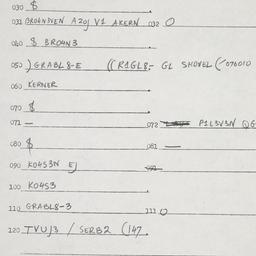 030 $
031 BRO4NDVEN AZOJ V1 AKERN 032 O
040 $ BRO4N3
050 ) GRABL8-E ((R1GL8- G1 SHOVEL ('070010
060 KERNER
070 $
071 — 072 P1L3V3N QG
080 $ 081 —
090 KO4S3N EJ 091
100 KO4S3
110 GRABL8-3 111 O
120 TVUJ3 / SERB2 (147.